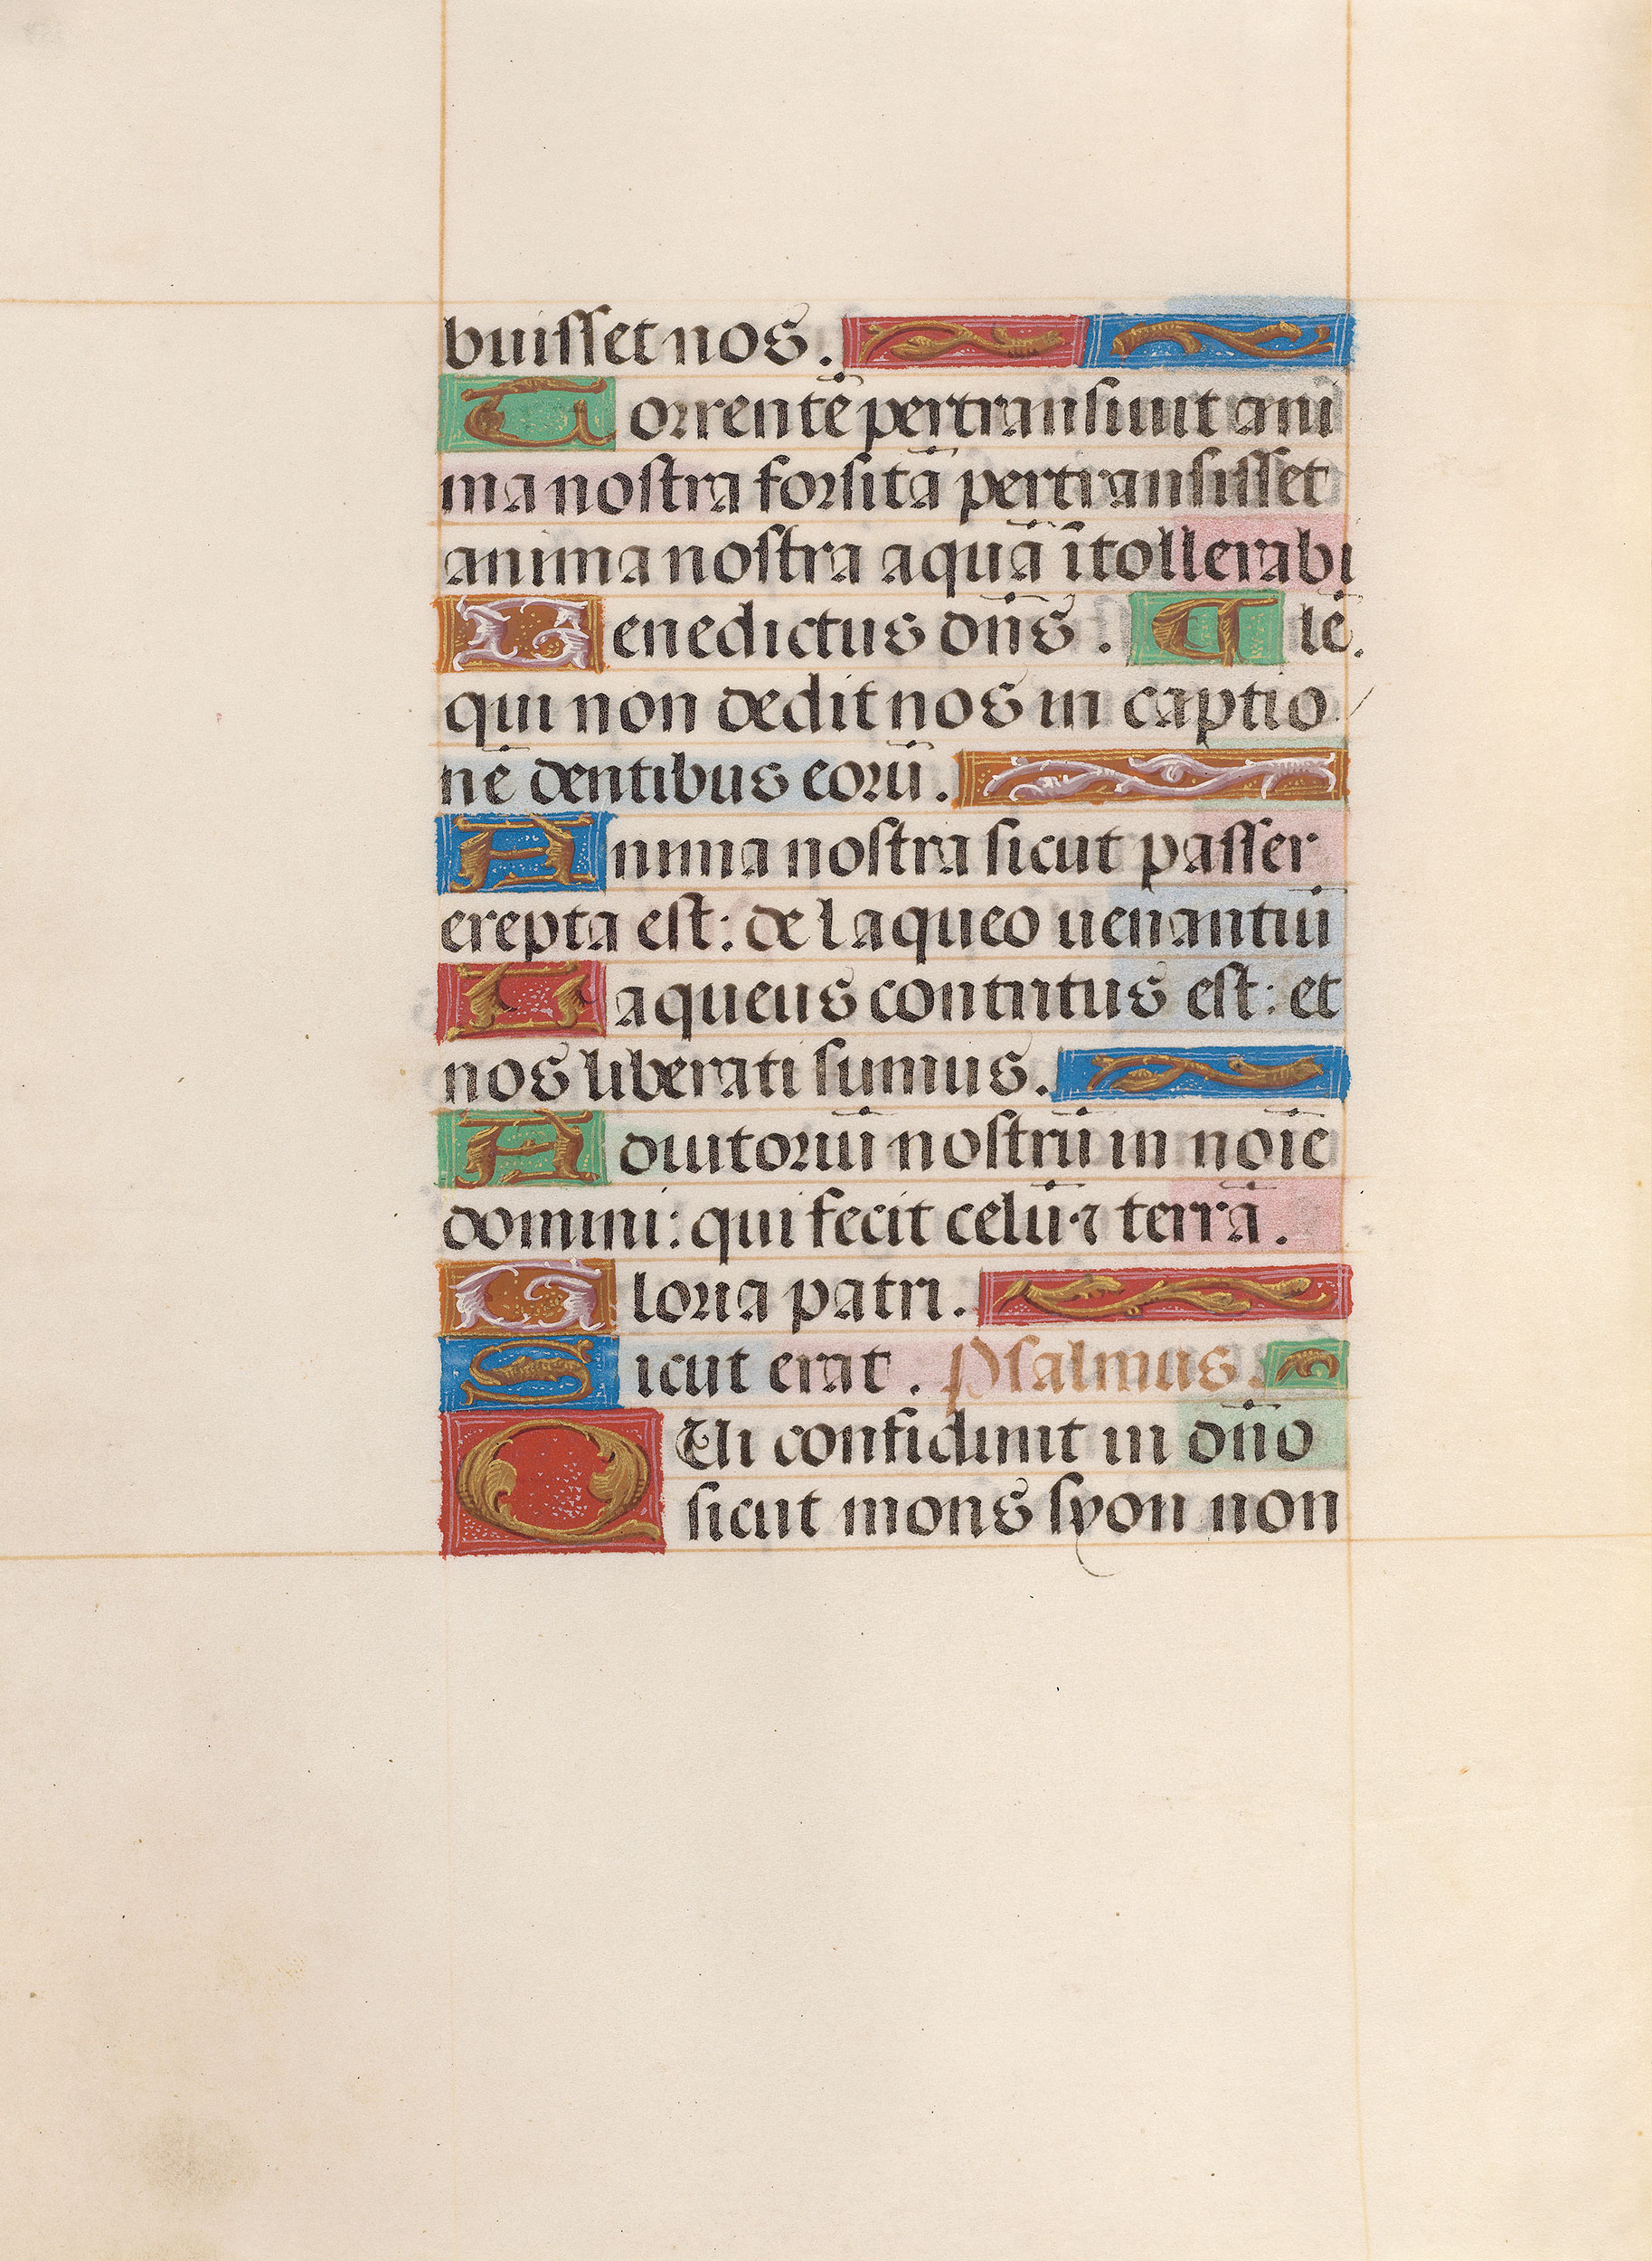 buisset nos.
Torrentē pertransiuit ani
ma nostra forsitā pertransisset
anima nostra aquā ītollerabi
Benedictus dn̄s. A lē.
qui non dedit nos in captio
nē dentibus eorū.
Anima nostra sicut passer
erepta est: de laqueo uenantiū
Laqueus contritus est: et
nos liberati sumus.
Adiutoriū nostrū in noīe
domini: qui fecit celū ⁊ terrā.
Gloria patri.
Sicut erat. Psalmus.
QUi confidunt in dn̄o
sicut mons syon non